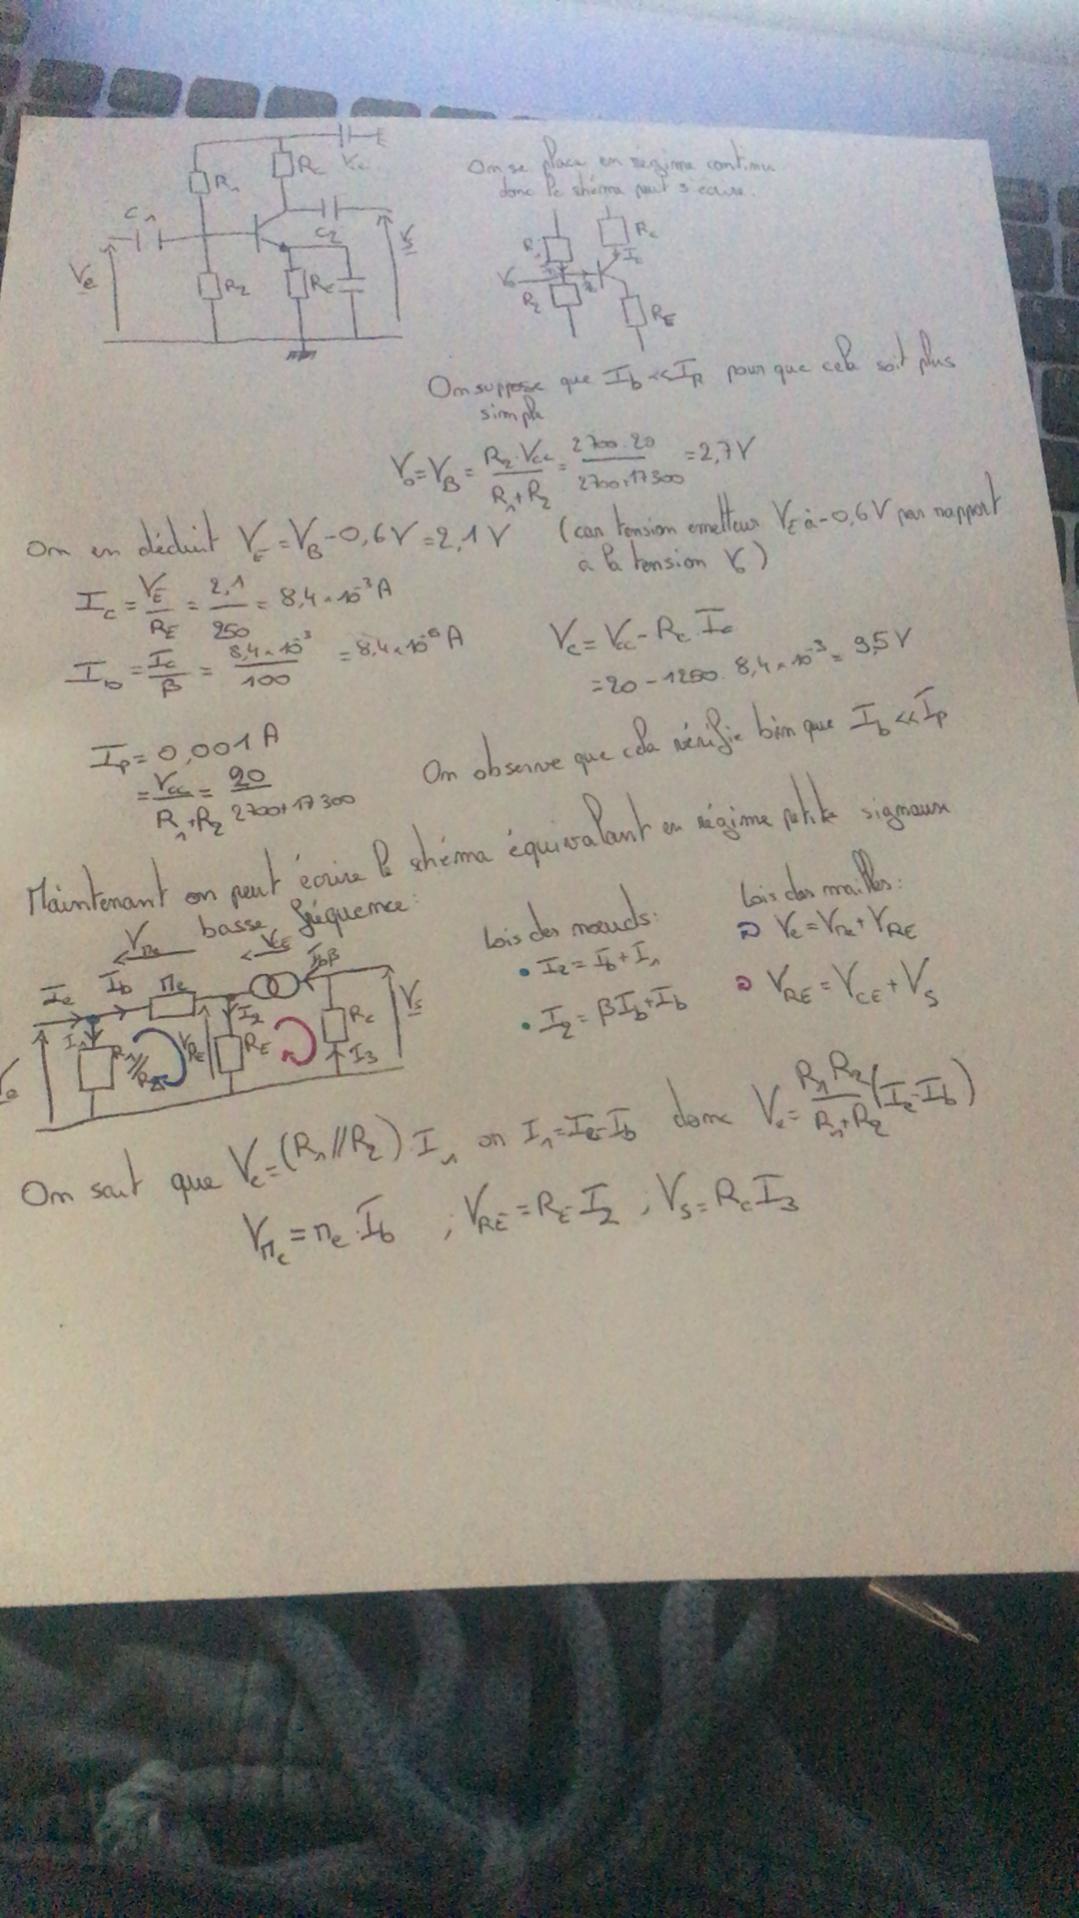 C1
R1
Rc
Vcc
C2
Ve
R2
RE
Vs
On se place en régime continu
donc le shéma peut s'écrire.
R1
Rc
Ic
V0
R2
RE
On suppose que Ib << Ip pour que cela soit plus
simple
V0 = VB = R2.Vcc / R1+R2 = 2700.20 / 2700+17300 = 2,7V
On en déduit VE = VB - 0,6V = 2,1V (car tension emetteur VE à -0,6V par rapport
a la tension VB)
Ic = VE / RE = 2,1 / 250 = 8,4 × 10^-3 A
Ib = Ic / β = 8,4 × 10^-3 / 100 = 8,4 × 10^-6 A
Vc = Vcc - Rc . Ic
= 20 - 1250. 8,4 × 10^-3 = 9,5V
Ip = 0,001 A
= Vcc / R1+R2 = 20 / 2700+17300
On observe que cela vérifie bien que Ib << Ip
Maintenant on peut écrire le shéma équivalant en régime petite signaux
basse fréquence:
Vre
VCE
Ie
Ib
re
Ibβ
I1
R1//R2
VRE
I2
RE
Rc
I3
Vs
Ve
Lois des nœuds:
• Ie = Ib + I1
• I2 = βIb + Ib
Lois des mailles:
Ve = Vre + VRE
VRE = VCE + Vs
On sait que Ve = (R1//R2) . I1 or I1 = Ie - Ib donc Ve = R1 R2 / R1+R2 (Ie - Ib)
Vre = re . Ib ; VRE = RE I2 ; Vs = Rc I3